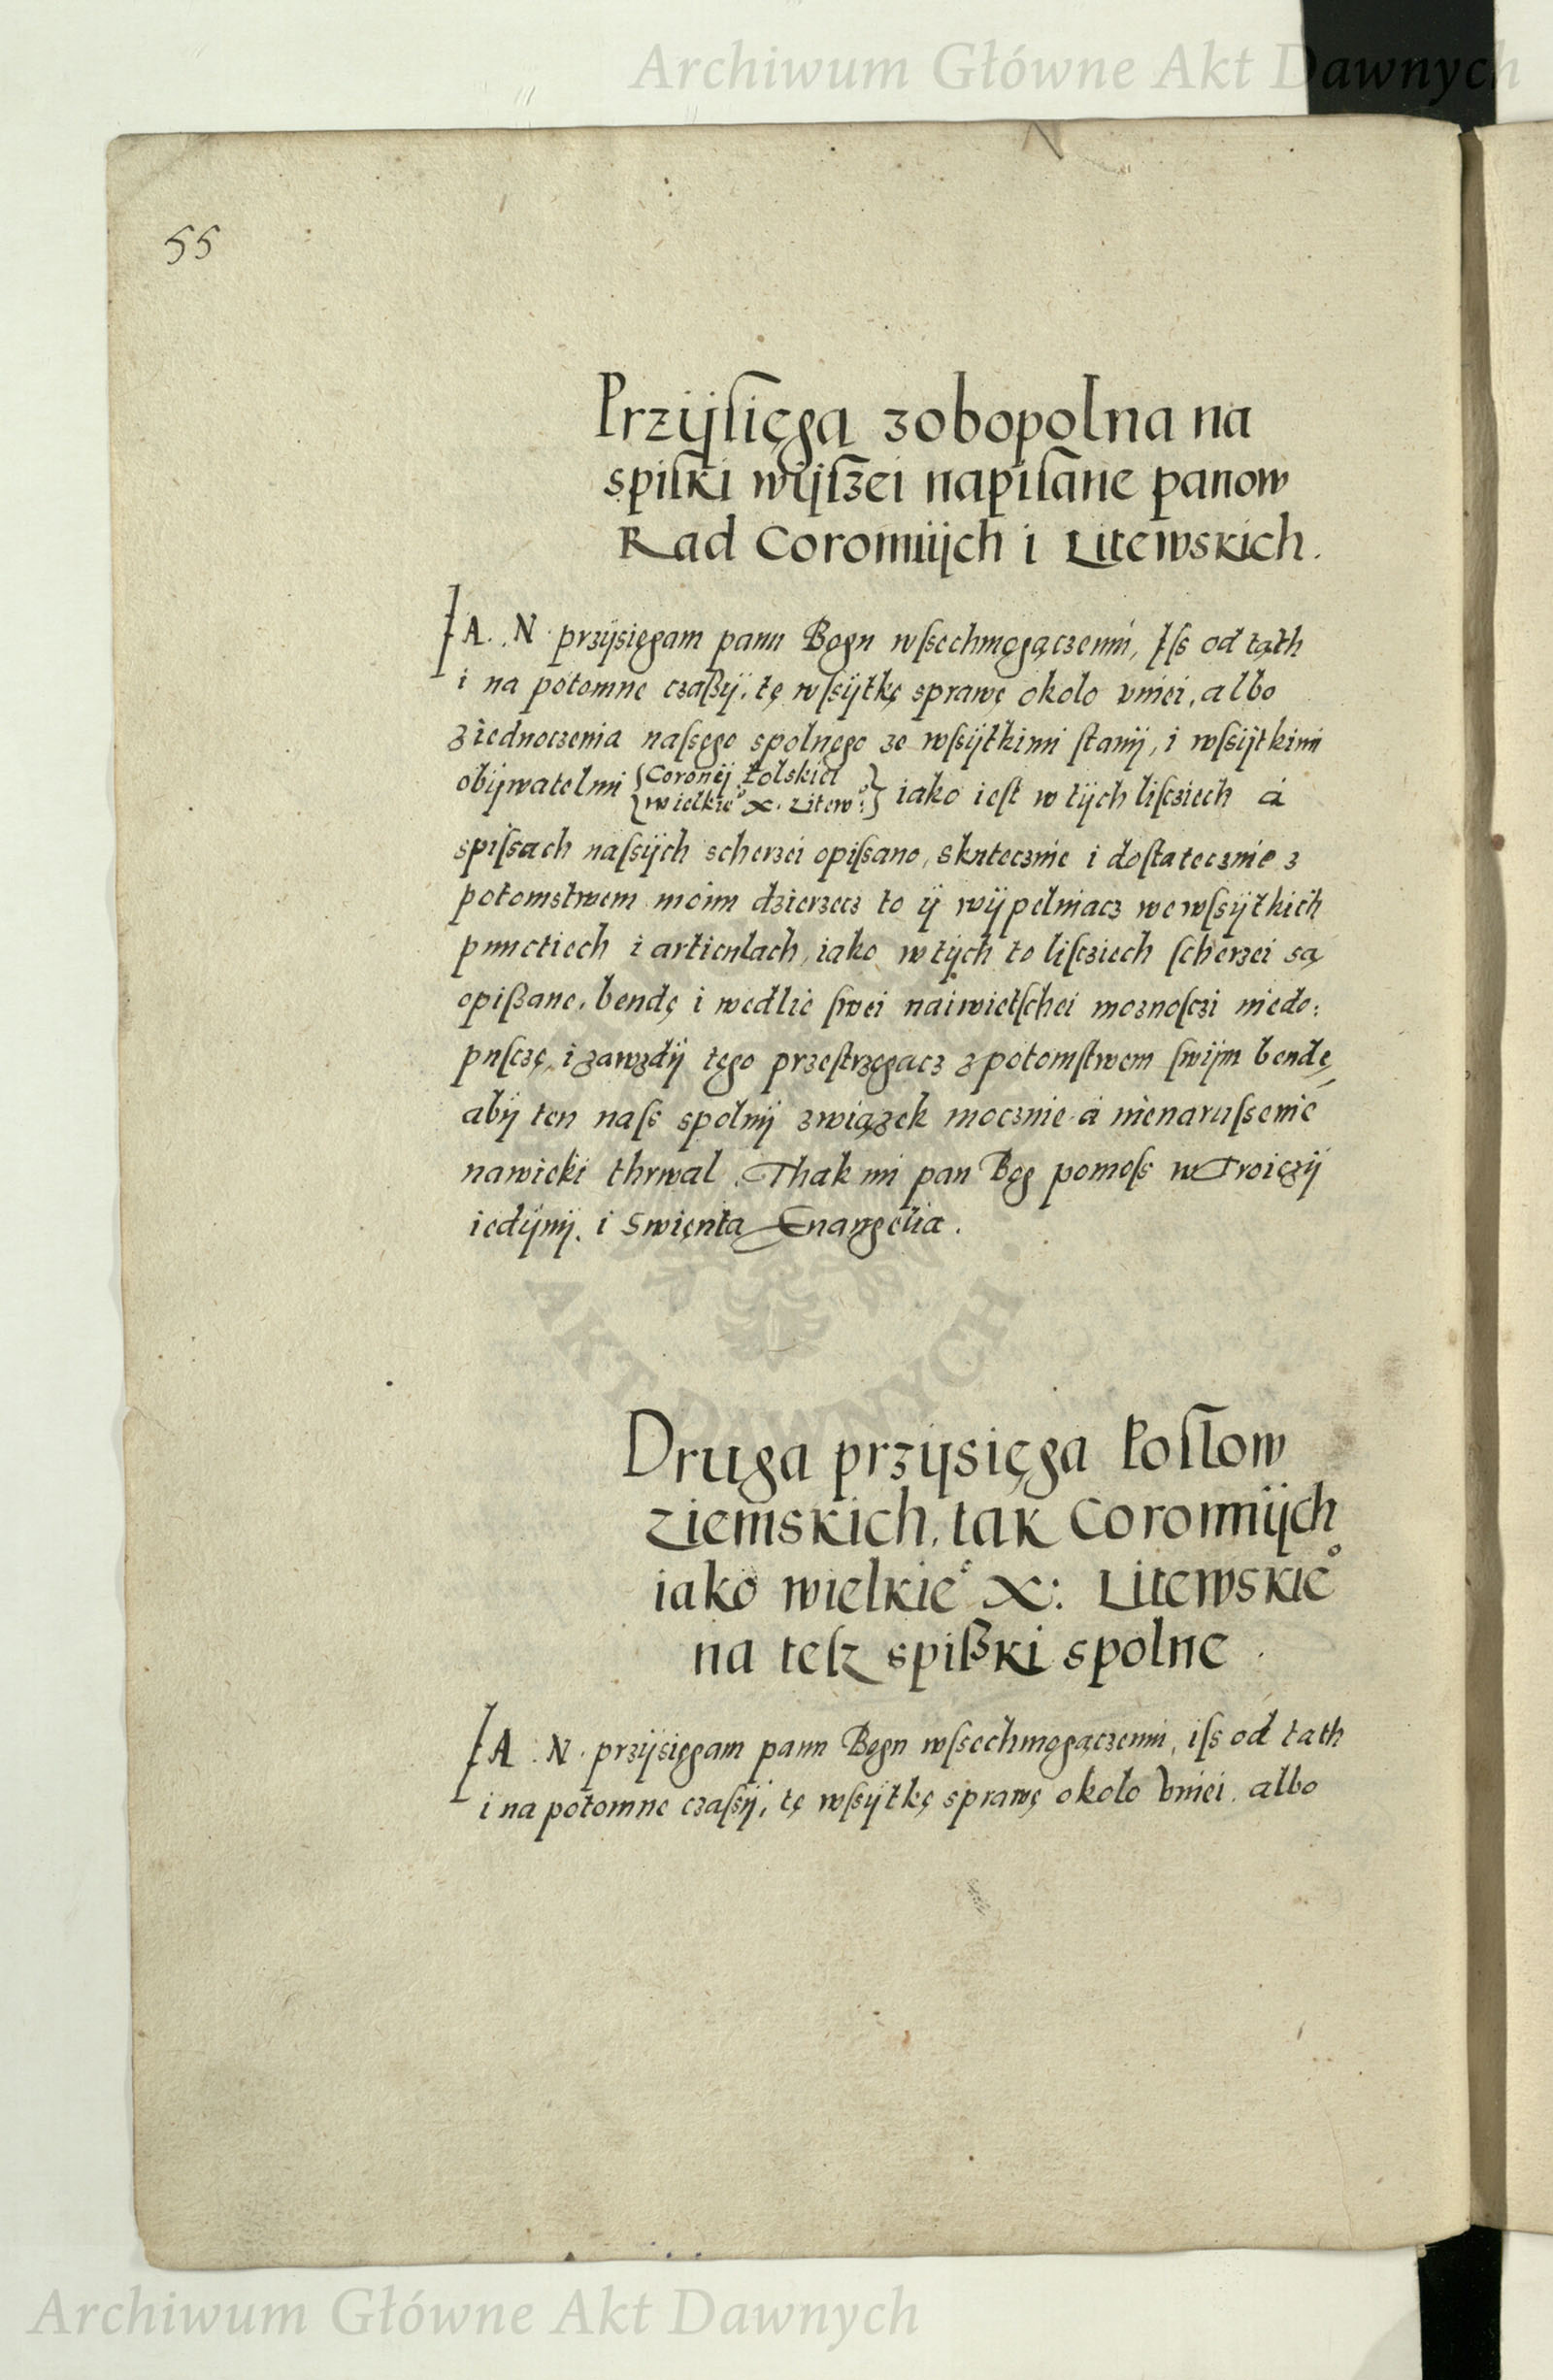 Archiwum Główne Akt Dawnych
55
Przÿsięga zobopolna na
spiski wÿszei napisane panow
Rad Coronnÿch i Litewskich.
IA. N. przÿsięgam panu Bogu wſsechmogączemu, Iſs od tąth
i na potomne czaßÿ, tę wſsÿtkę sprawę okolo vniei, albo
ziednoczenia naſsego spolnego ze wſsÿtkimi ſtanÿ, i wſsÿtkimi
obÿwatelmi {Coronÿ Polskiei
{wielkie° X. Litew°:} iako ieſt w tÿch liſcziech á
spiſsach naſsÿch scherzei opiſsano, skutecznie i doſtatecznie z
potomstwem moim dzierzecz to ÿ wÿpelniacz we wſsÿtkich
punctiech i articulach, iako w tÿch to liſcziech ſcherzei są
opißane, bendę i wedlie ſwei naiwietſchei moznoſczi niedo:
puſczę, i zawzdÿ tego przeſtrzegacz z potomſtwem ſwÿm bendę,
abÿ ten naſs spolnÿ związek mocznie á nienaruſsenie
nawieki thrwal. Thak mi pan Bog pomoſs w Troiczÿ
iedÿnÿ, i Swięnta Euangelia.
AKT DAWNYCH.
Druga przÿsięga Poſlow
ziemskich, tak Coronnÿch
iako wielkie° X: Litewskie°
na teſz spißki spolne.
IA. N. przÿsięgam panu Bogu wſsechmogączemu, iſs od tath
i na potomne czaſsÿ, tę wſsÿtkę sprawę okolo Vniei, albo
Archiwum Główne Akt Dawnych